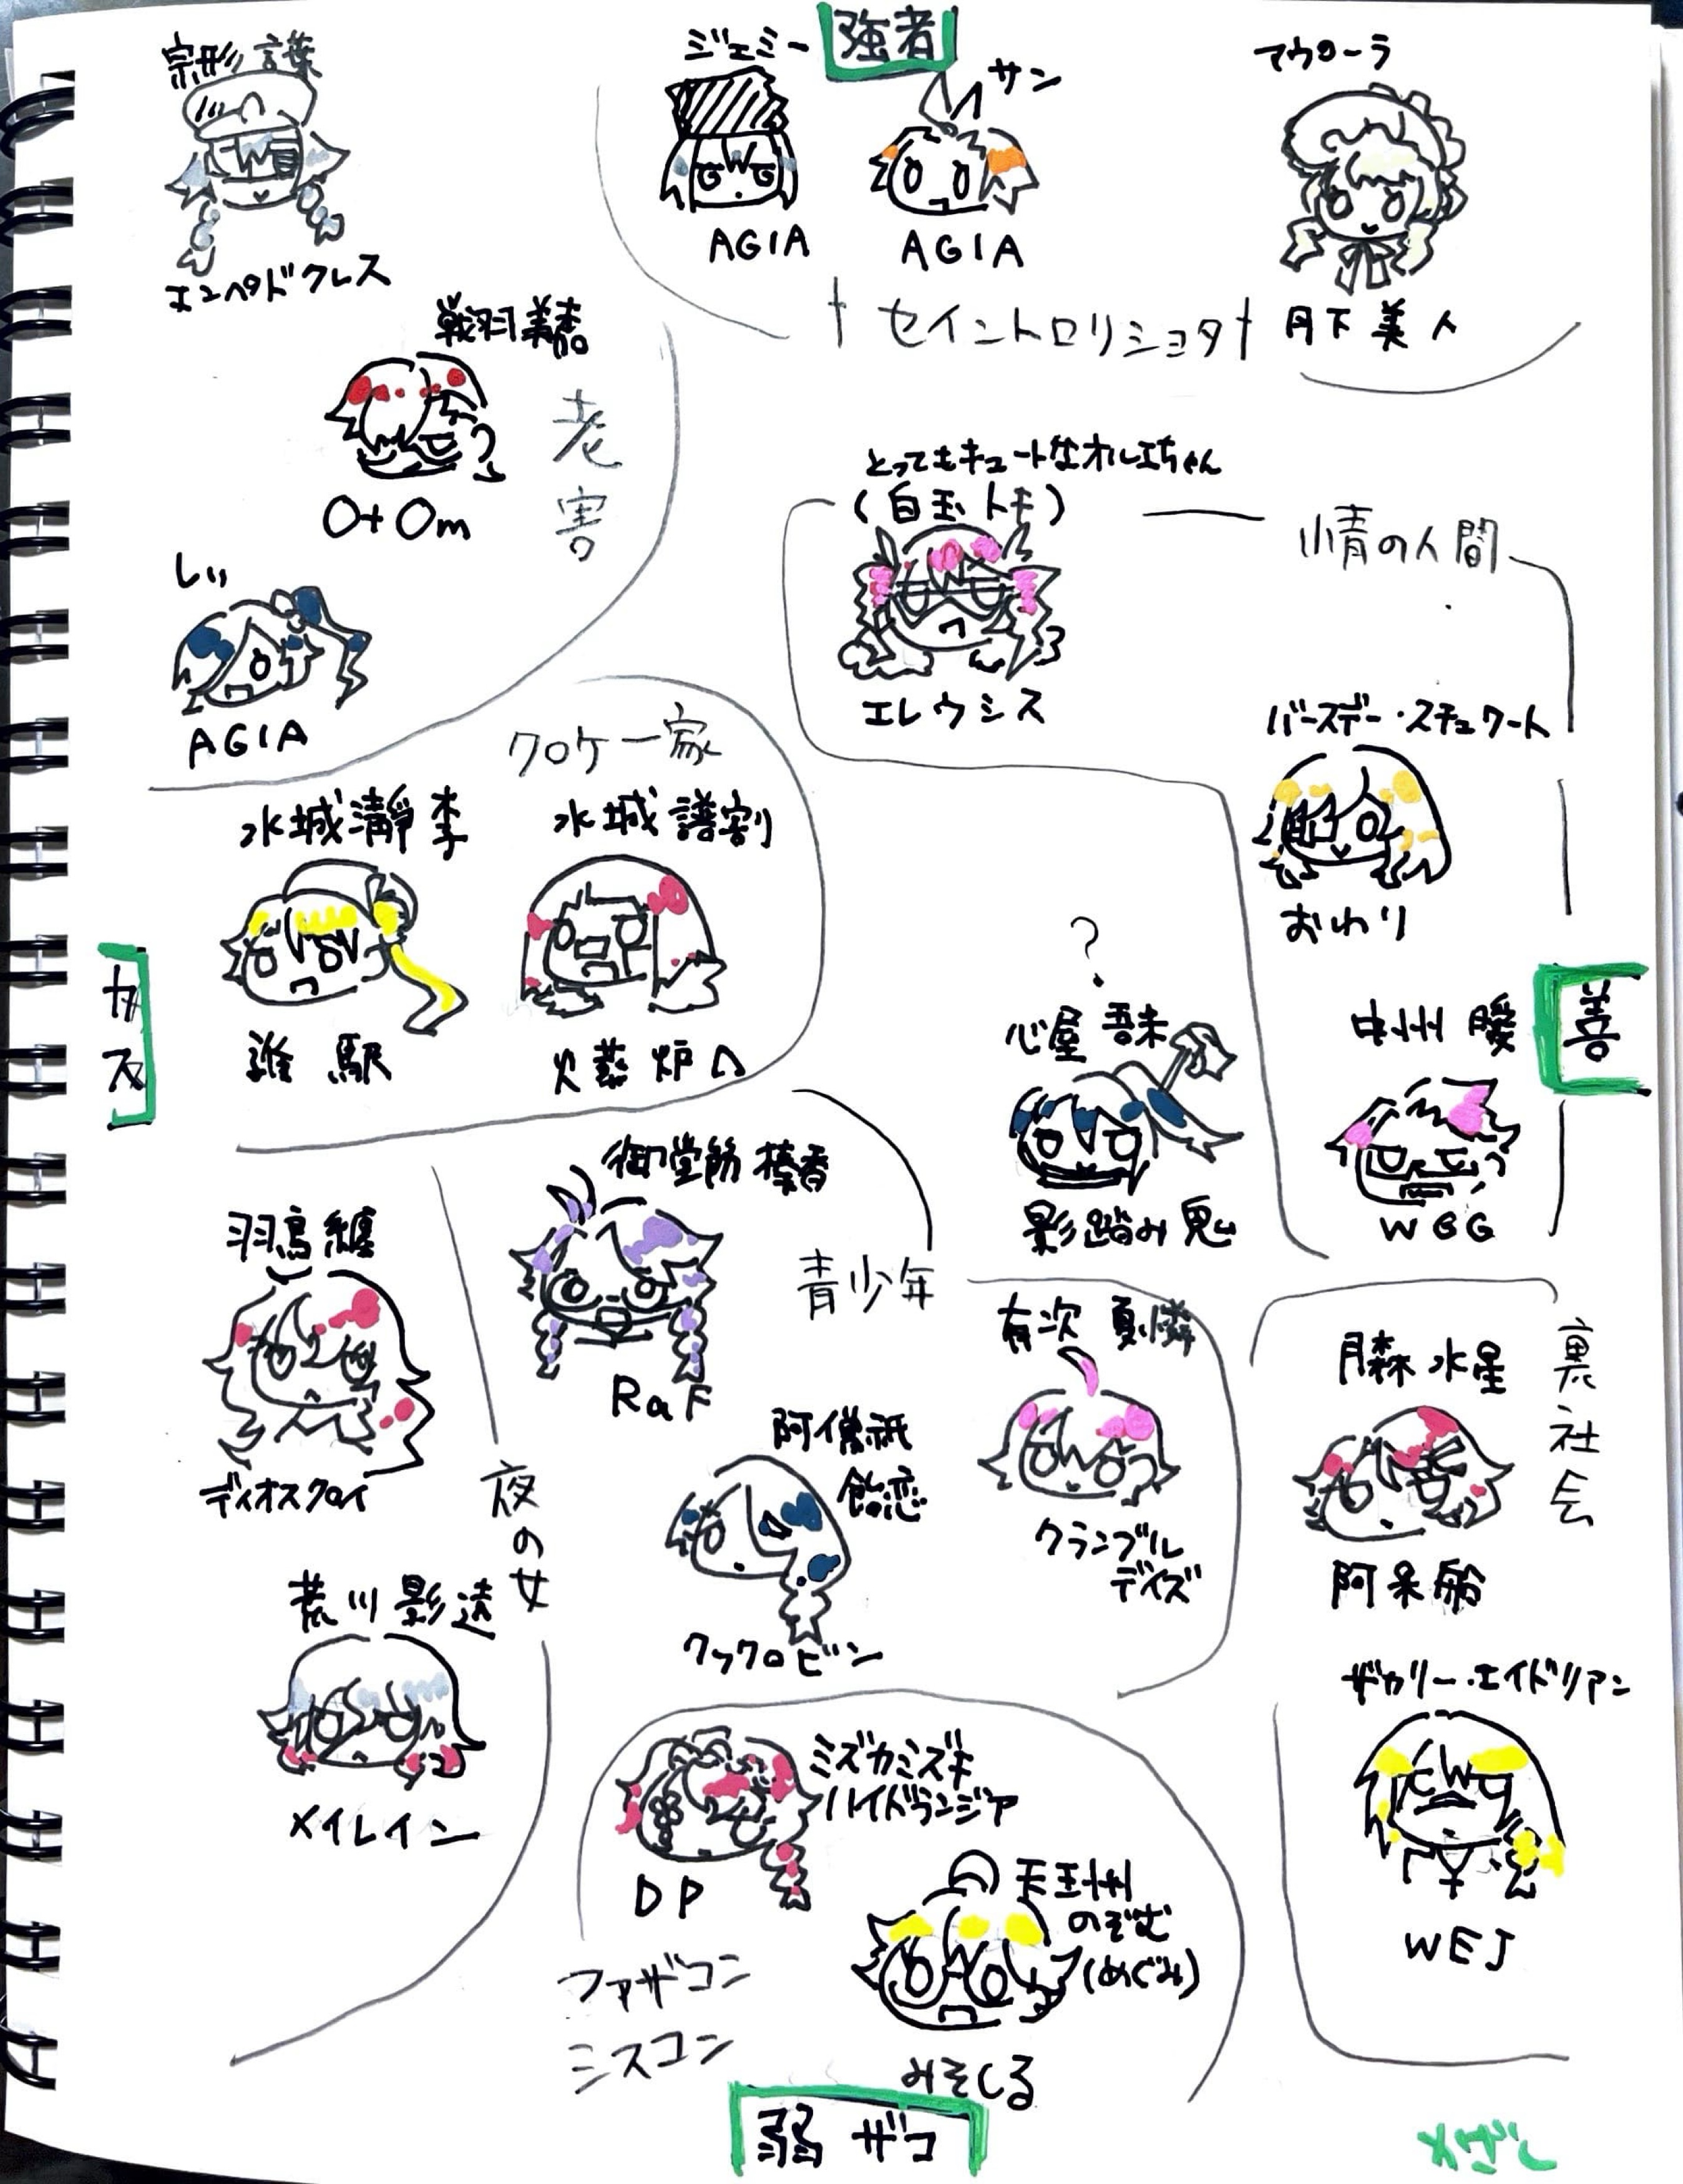 強者
宗形 言葉
エンペドクレス
ジェミー
AGIA
サン
AGIA
アウローラ
月下美人
†セイントロリショタ†
戦羽美
O+Om
老害
しい
AGIA
とってもキュートなオルエちゃん
(白玉 トモ)
エレウシス
情の人間
バースデー・スチュワート
おわり
クロケ一家
水城 瀞李
誰駅
水城 譜割
火葬炉心
カス
善
?
心屋 吾未
影踏み鬼
中州 暖
WGG
御堂筋 榛香
RaF
青少年
羽鳥 纏
ディオスクロイ
夜の女
荒川 影遠
メイレイン
阿僧祇
飴恋
クックロビン
有次 夏憐
クランブル
デイズ
裏社会
月森 水星
阿呆船
ザカリー・エイドリアン
WEJ
ミズカミズキ
ハイドランジア
DP
天王州
のぞむ
(めぐみ)
みそしる
ファザコン
シスコン
弱 ザコ
めざし